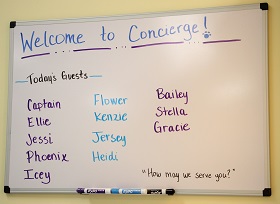 Welcome to Concierge!
Today's Guests
Captain
Ellie
Jessi
Phoenix
Icey
Flower
Kenzie
Jersey
Heidi
Bailey
Stella
Gracie
"How may we serve you?"